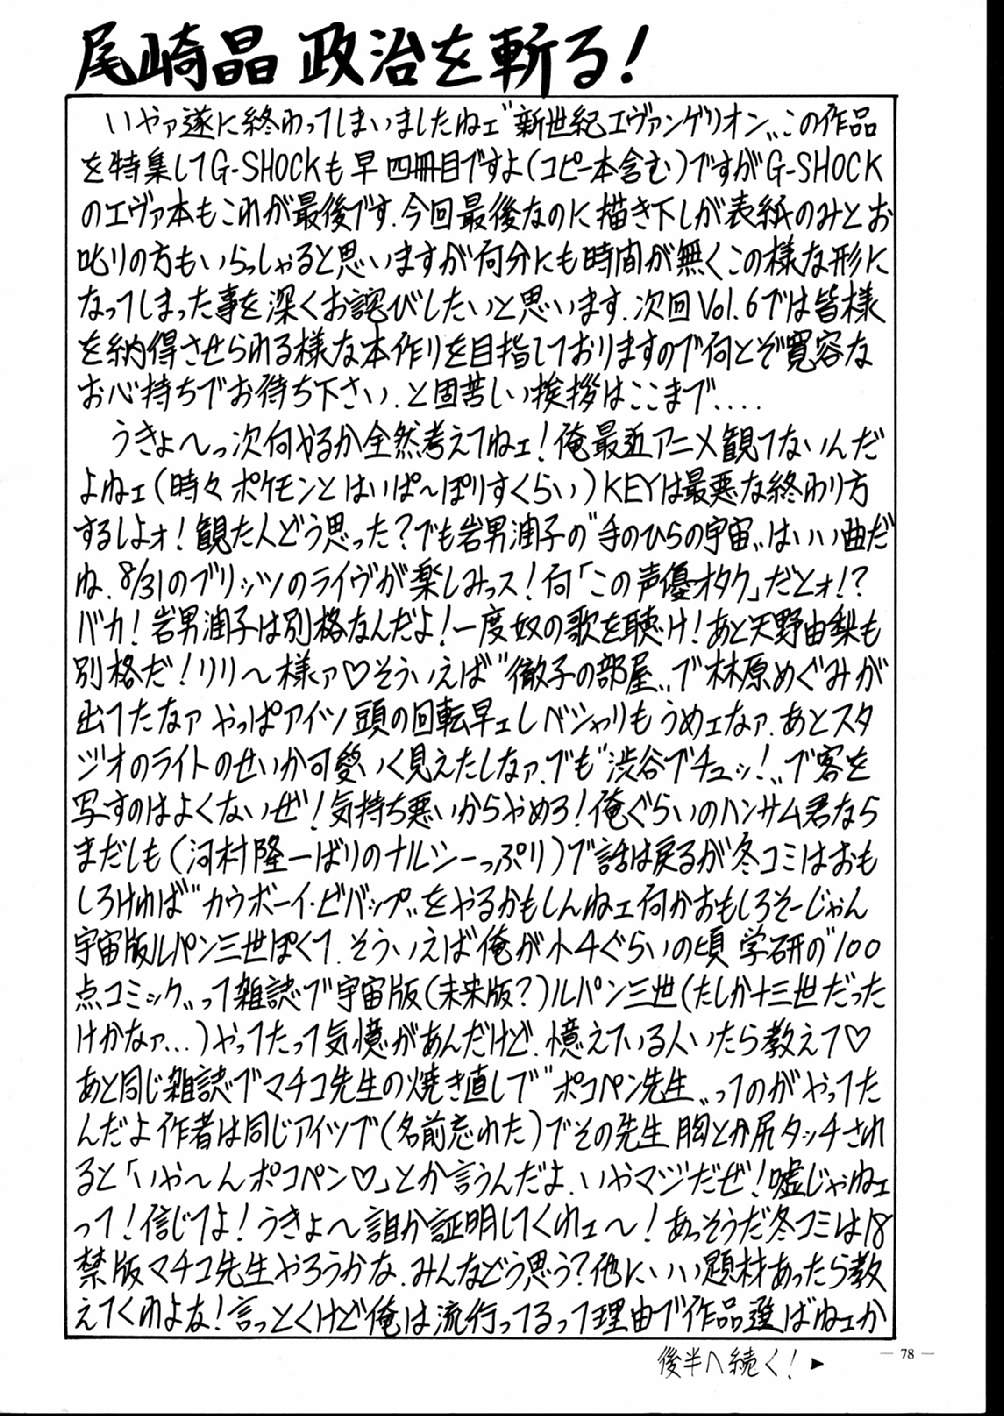 尾崎晶 政治を斬る!
いやァ遂に終わってしまいましたねェ〝新世紀エヴァンゲリオン〟この作品
を特集してG-SHOCKも早四冊目ですよ(コピー本含む)ですがG-SHOCK
のエヴァ本もこれが最後です.今回最後なのに描き下しが表紙のみとお
叱りの方もいらっしゃると思いますが何分にも時間が無くこの様な形に
なってしまった事を深くお詫びしたいと思います.次回Vol.6では皆様
を納得させられる様な本作りを目指しておりますので何とぞ寛容な
お心持ちでお待ち下さい.と固苦しい挨拶はここまで....
うきょ〜っ次何やるか全然考えてねェ!俺最近アニメ観てないんだ
よねェ(時々ポケモンとはいぱ〜ぽりすくらい)KEYは最悪な終わり方
するしよォ!観た人どう思った?でも岩男潤子の〝手のひらの宇宙〟はいい曲だ
ね.8/31のブリッツのライヴが楽しみっス!何「この声優オタク」だとォ!?
バカ!岩男潤子は別格なんだよ!一度奴の歌を聴け!あと天野由梨も
別格だ!リリ〜様ァ♡そういえば〝徹子の部屋〟で林原めぐみが
出てたなァ やっぱアイツ頭の回転早ェしベシャリもうめェなァ.あとスタ
ジオのライトのせいか可愛いく見えたしなァ.でも〝渋谷でチュッ!〟で客を
写すのはよくないぜ!気持ち悪いからやめろ!俺ぐらいのハンサム君なら
まだしも(河村隆一ばりのナルシーっぷり)で話は戻るが冬コミはおも
しろければ〝カウボーイ・ビバップ〟をやるかもしんねェ何かおもしろそーじゃん
宇宙版ルパン三世ぽくて.そういえば俺が小4ぐらいの頃 学研の〝100
点コミック〟って雑誌で宇宙版(未来版?)ルパン三世(たしか十三世だった
けかなァ...)やってたって気憶があんだけど.憶えている人いたら教えて♡
あと同じ雑誌でマチコ先生の焼き直しで〝ポコペン先生〟ってのがやってた
んだよ作者は同じアイツで(名前忘れた)でその先生胸とか尻タッチされ
ると「いや〜んポコペン♡」とか言うんだよ.いやマジだぜ!嘘じゃねェ
って!信じてよ!うきょ〜誰か証明してくれェ〜!あっそうだ冬コミは18
禁版マチコ先生やろうかな.みんなどう思う?他にいい題材あったら教
えてくれよな!言っとくけど俺は流行ってるって理由で作品選ばねェか
後半へ続く!▶
— 78 —